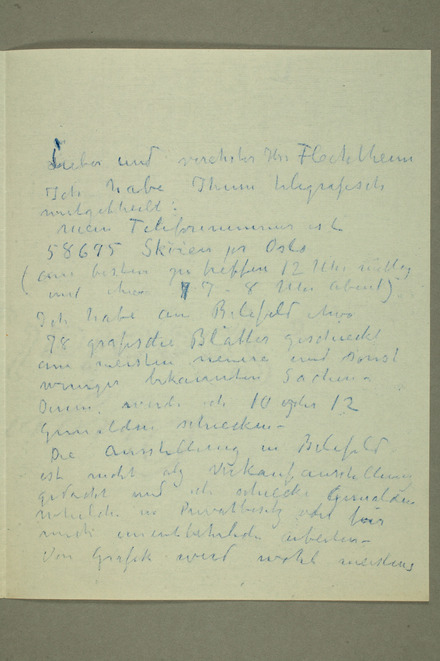 Lieber und verehrter Herr Flechtheim
Ich habe Ihnen telegrafisch
mitgetheilt:
mein Telefonnummer ist
58675 Skøien pr Oslo
(am besten zu treffen 12 Uhr mittag
und 7-8 Uhr abent)
Ich habe an Bielefeld
78 grafische Blätter geschickt
am meisten neuere und sonst
weniger bekannten Sachen-
werde ich 10 oder 12
Gemälden schicken-
Die Ausstellung in Bielefeld
ist nicht als Verkaufausstellung
gedacht und ich schicke Gemälden
in Privatbesitz für
mich unentbehrliche arbeiten-
Von Grafik wird wohl meistens